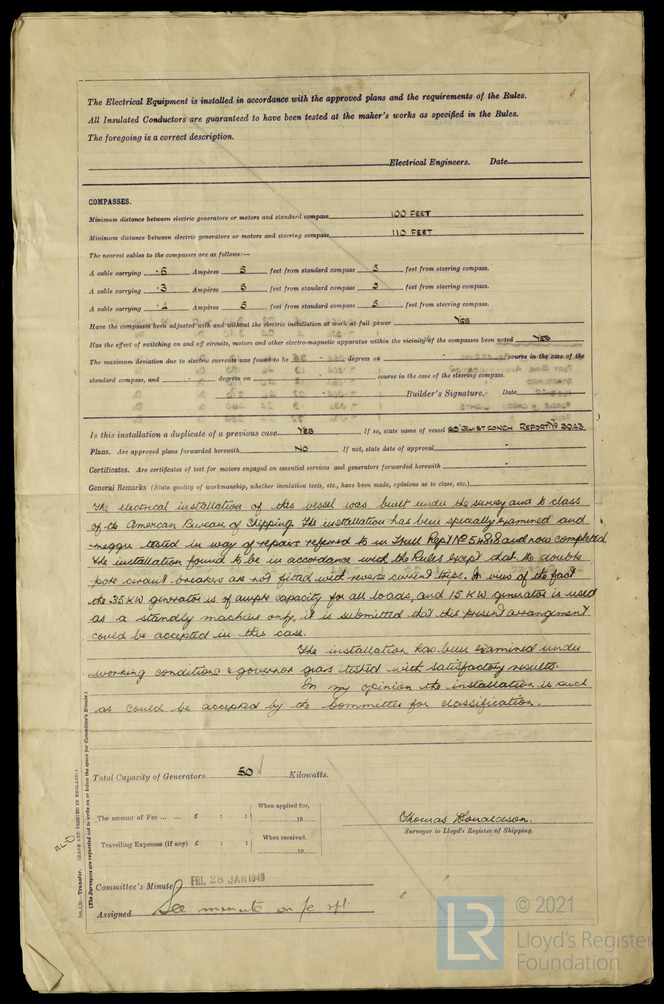 The Electrical Equipment is installed in accordance with the approved plans and the requirements of the Rules.
All Insulated Conductors are guaranteed to have been tested at the maker's works as specified in the Rules.
The foregoing is a correct description.
Electrical Engineers. Date
COMPASSES.
Minimum distance between electric generators or motors and standard compass 100 FEET
Minimum distance between electric generators or motors and steering compass 110 FEET
The nearest cables to the compasses are as follows:—
A cable carrying ·6 Ampères 5 feet from standard compass 5 feet from steering compass.
A cable carrying ·3 Ampères 5 feet from standard compass 5 feet from steering compass.
A cable carrying Ampères 5 feet from standard compass 5 feet from steering compass.
Have the compasses been adjusted with and without the electric installation at work at full power YES
Has the effect of switching on and off circuits, motors and other electro-magnetic apparatus within the vicinity of the compasses been noted YES
The maximum deviation due to electric currents was found to be - degrees on - course in the case of the
standard compass, and - degrees on - course in the case of the steering compass.
Builder's Signature. Date
Is this installation a duplicate of a previous case YES If so, state name of vessel REPORT Nº 3043
Plans. Are approved plans forwarded herewith NO If not, state date of approval -
Certificates. Are certificates of test for motors engaged on essential services and generators forwarded herewith -
General Remarks (State quality of workmanship, whether insulation tests, etc., have been made, opinions as to class, etc.)
The electrical installation of this vessel was built under the survey and to class
of the American Bureau of Shipping. The installation has been specially examined and
megger tested in way of repairs referred to in Hull Rept Nº 5488 and now completed
The installation found to be in accordance with the Rules except that the double
pole circuit breakers are not fitted with reverse current trips. In view of the fact
the 35 KW generator is of ample capacity for all loads, and 15 KW generator is used
as a standby machine only, it is submitted that this present arrangement
could be accepted in this case.
The installation has been examined under
working conditions & governor gears tested with satisfactory results.
In my opinion the installation is such
as could be accepted by the Committee for classification.
Total Capacity of Generators 50 Kilowatts.
The amount of Fee ... ... £ : : When applied for, 19
Travelling Expenses (if any) £ : : When received. 19
Thomas Donaldson.
Surveyor to Lloyd's Register of Shipping.
Committee's Minute FRI. 28 JAN 1949
Assigned See minute on
Transfer. (MADE AND PRINTED IN ENGLAND.)
(The Surveyors are requested not to write on or below the space for Committee's Minute.)
LR
© 2021
Lloyd's Register
Foundation